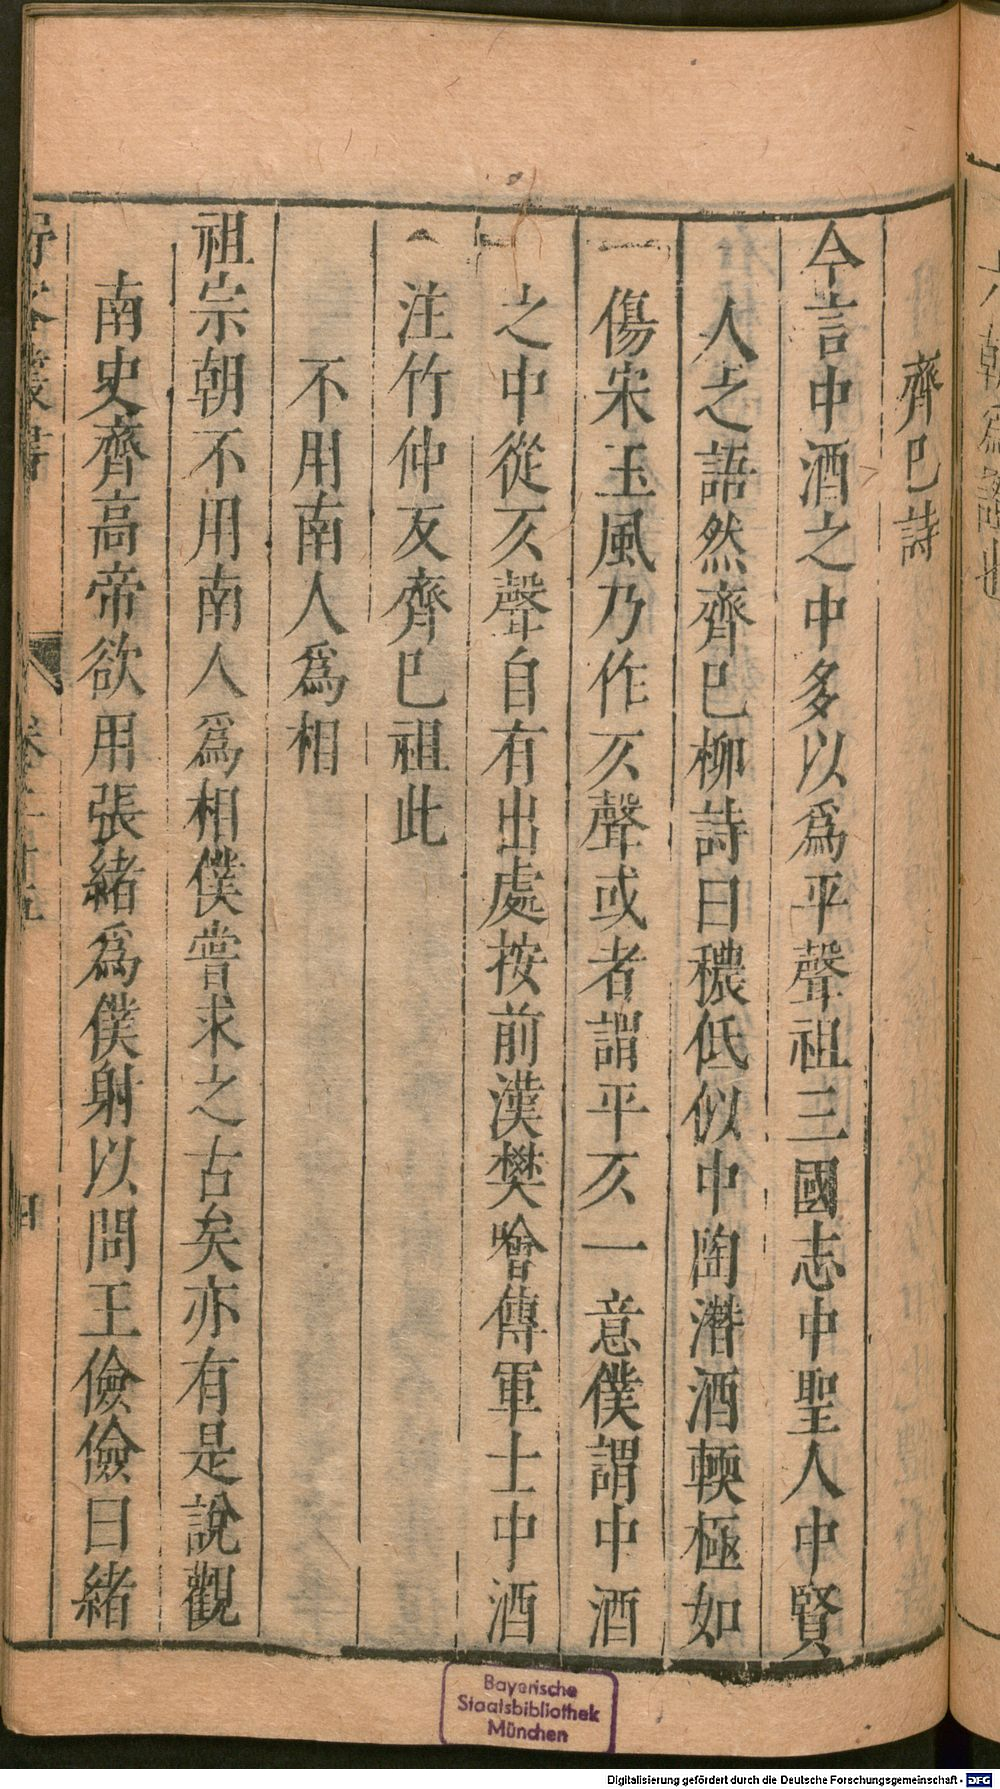 齊巳詩
今言中酒之中多以爲平聲祖三國志中聖人中賢
人之語然齊巳柳詩曰穠低似中陶潛酒輭極如
傷宋玉風乃作仄聲或者謂平仄一意僕謂中酒
之中從仄聲自有出處按前漢樊噲傳軍士中酒
注竹仲反齊巳祖此
不用南人爲相
祖宗朝不用南人爲相僕嘗求之古矣亦有是說觀
南史齊高帝欲用張緒爲僕射以問王儉儉曰緒
叢書
Bayerische
Staatsbibliothek
München
Digitalisierung gefördert durch die Deutsche Forschungsgemeinschaft - DFG